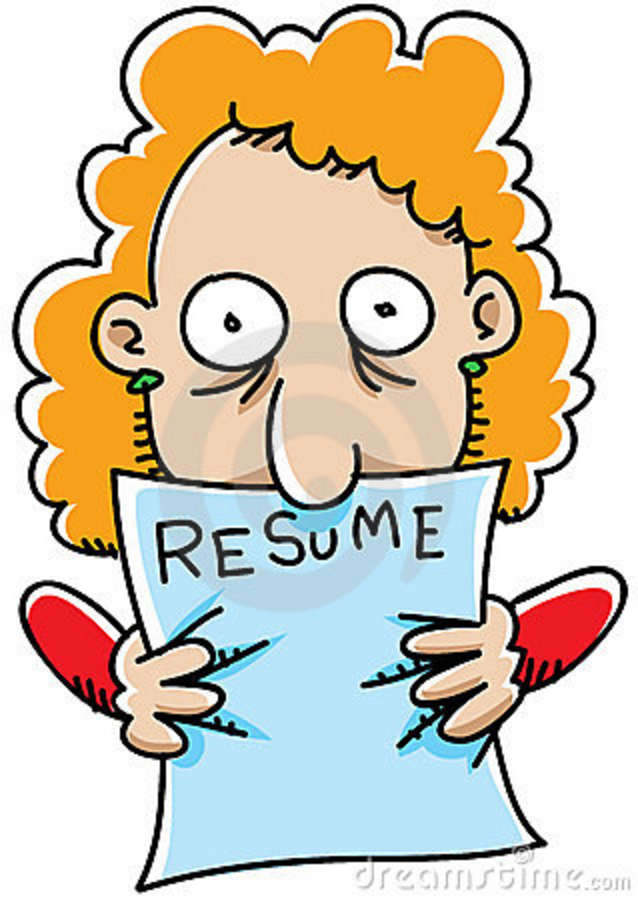 RESUME
dreamstime.com